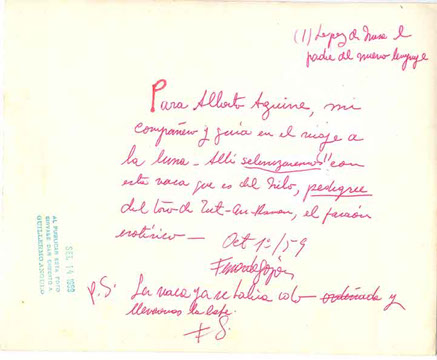 (1) Lopez de Mesa el
padre del nuevo lenguaje
Para Alberto Aguirre, mi
compañero y guía en el viaje a
la luna - Allí selenizaremos" con
esta vaca que es del Nilo, pedigree
del toro de Tut-An-Kamon, el faraón
esotérico -
Oct 1º/59
P.S. La vaca ya se había ordeñada y
llevamos la leche.
F G.
AL PUBLICAR ESTA FOTO
SIRVASE DAR CREDITO A
GUILLERMO ANGULO
SEP. 14 1959